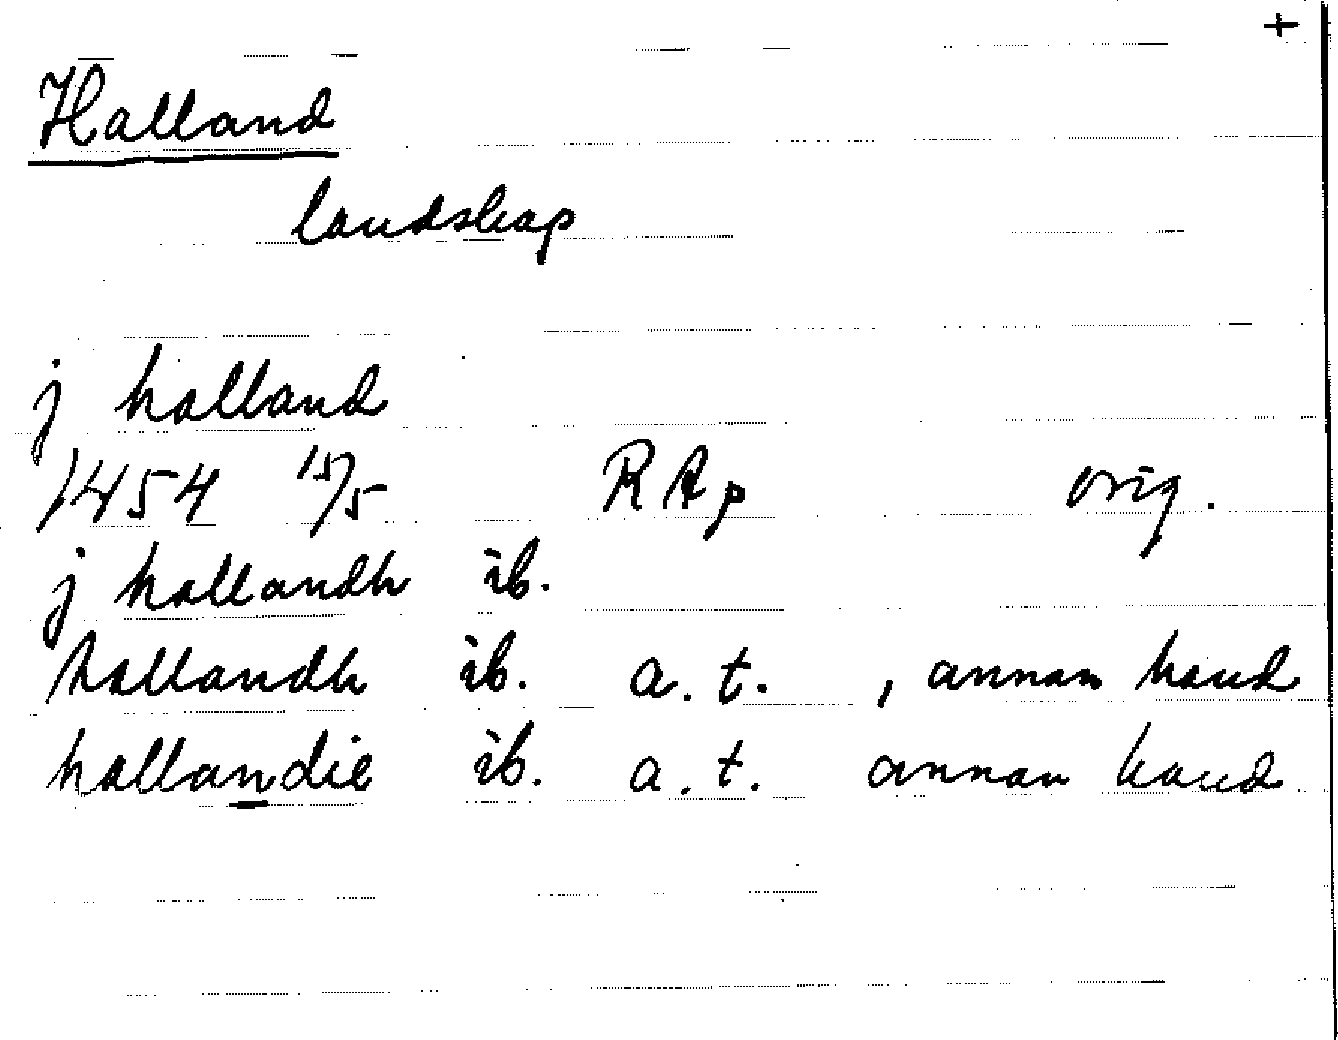 +
Halland
landskap
j halland
1454 15/5 RAp orig.
j hallandh ib.
hallandh ib. a. t. , annan hand
hallandie ib. a. t. annan hand